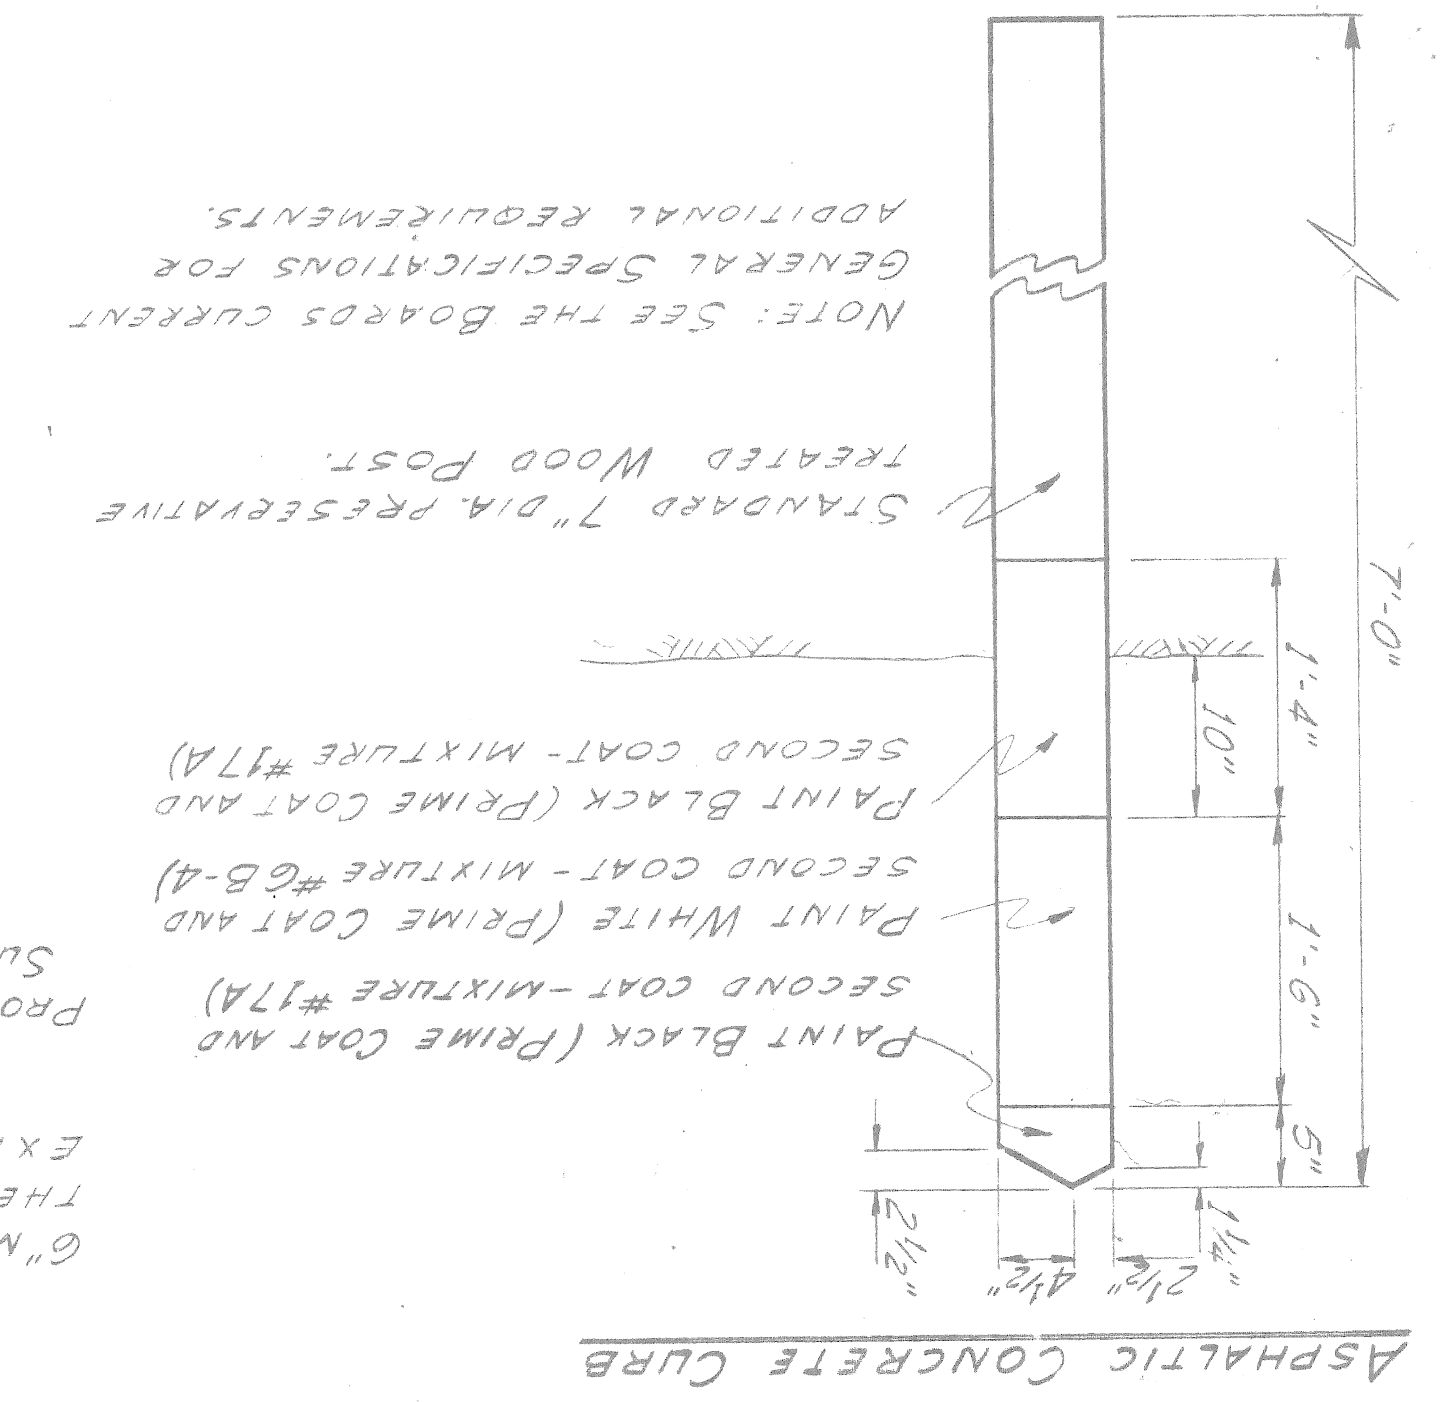 ASPHALTIC CONCRETE CURB
1 1/4"
2 1/2"
4 1/2"
2 1/2"
5"
1'-6"
1'-4"
10"
7'-0"
PAINT BLACK (PRIME COAT AND
SECOND COAT - MIXTURE #17A)
PAINT WHITE (PRIME COAT AND
SECOND COAT - MIXTURE #6B-4)
PAINT BLACK (PRIME COAT AND
SECOND COAT - MIXTURE #17A)
STANDARD 7" DIA. PRESERVATIVE
TREATED WOOD POST.
NOTE: SEE THE BOARDS CURRENT
GENERAL SPECIFICATIONS FOR
ADDITIONAL REQUIREMENTS.
6"
THE
EX
PRO
SU